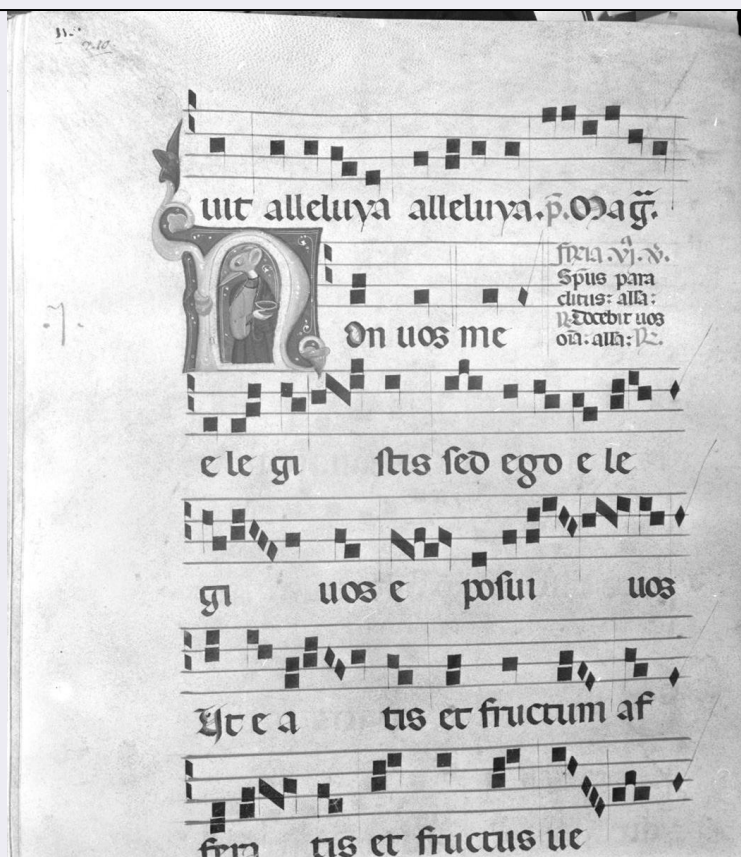 uit alleluya alleluya. p̄. Mag̅.
feria .vi. v̄.
Sp̄us para
clitus: all̄a:
R Docebit uos
oı̄a: all̄a: R.
Non uos me
e le gi stis sed ego e le
gi uos e posui uos
Ut e a tis et fructum af
fera tis et fructus ue